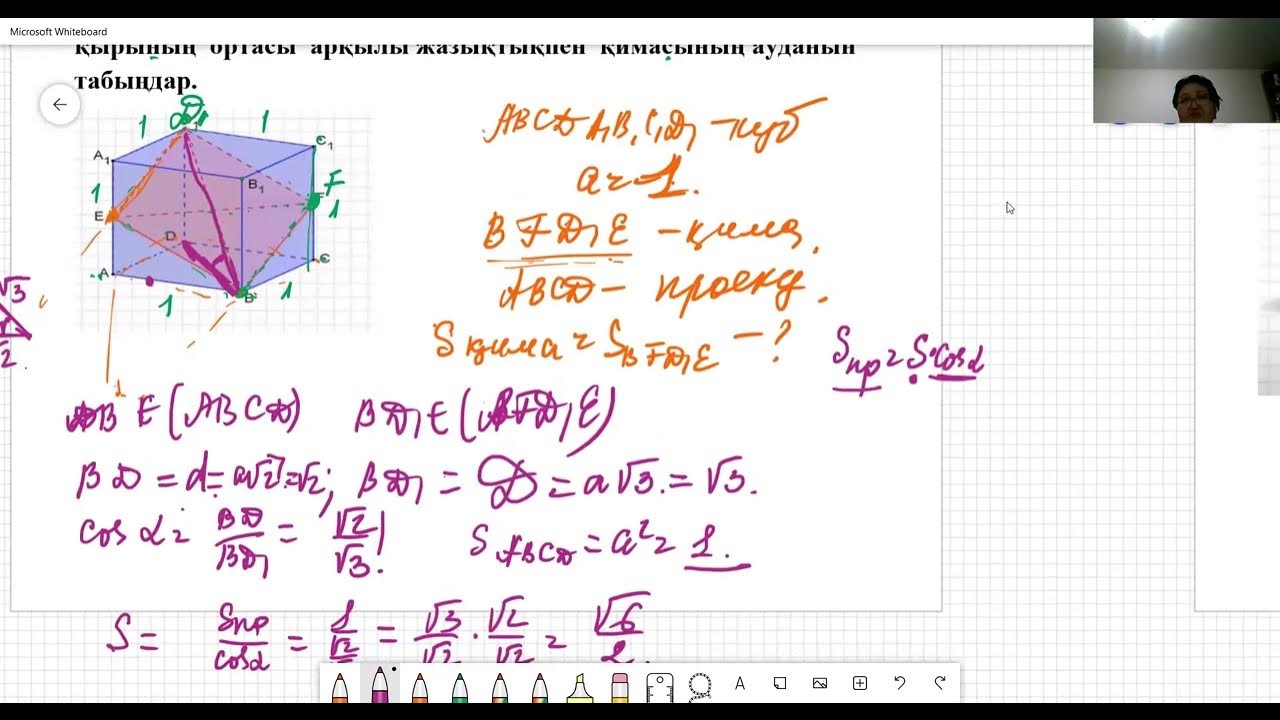 Microsoft Whiteboard
қырының ортасы арқылы жазықтықпен қимасының ауданын
табыңдар.
ABCDA₁B₁C₁D₁ – куб
a = 1.
BFD₁E – қима.
ABCD – проекц.
S қима = S BFD₁E – ?
Sпр = S·cosα
D₁
1
1
A₁
C₁
B₁
1
F
E
1
D
A
C
B
1
1
√3
√2
B E (ABCD) BD₁ ∈ (BFD₁E)
BD = d = a√2 = √2; BD₁ = D = a√3 = √3.
cos α = BD/BD₁ = √2/√3!
S ABCD = a² = 1.
S = Sпр/cosα = 1/√2 = √3/√2 · √2/√2 = √6/2.
A